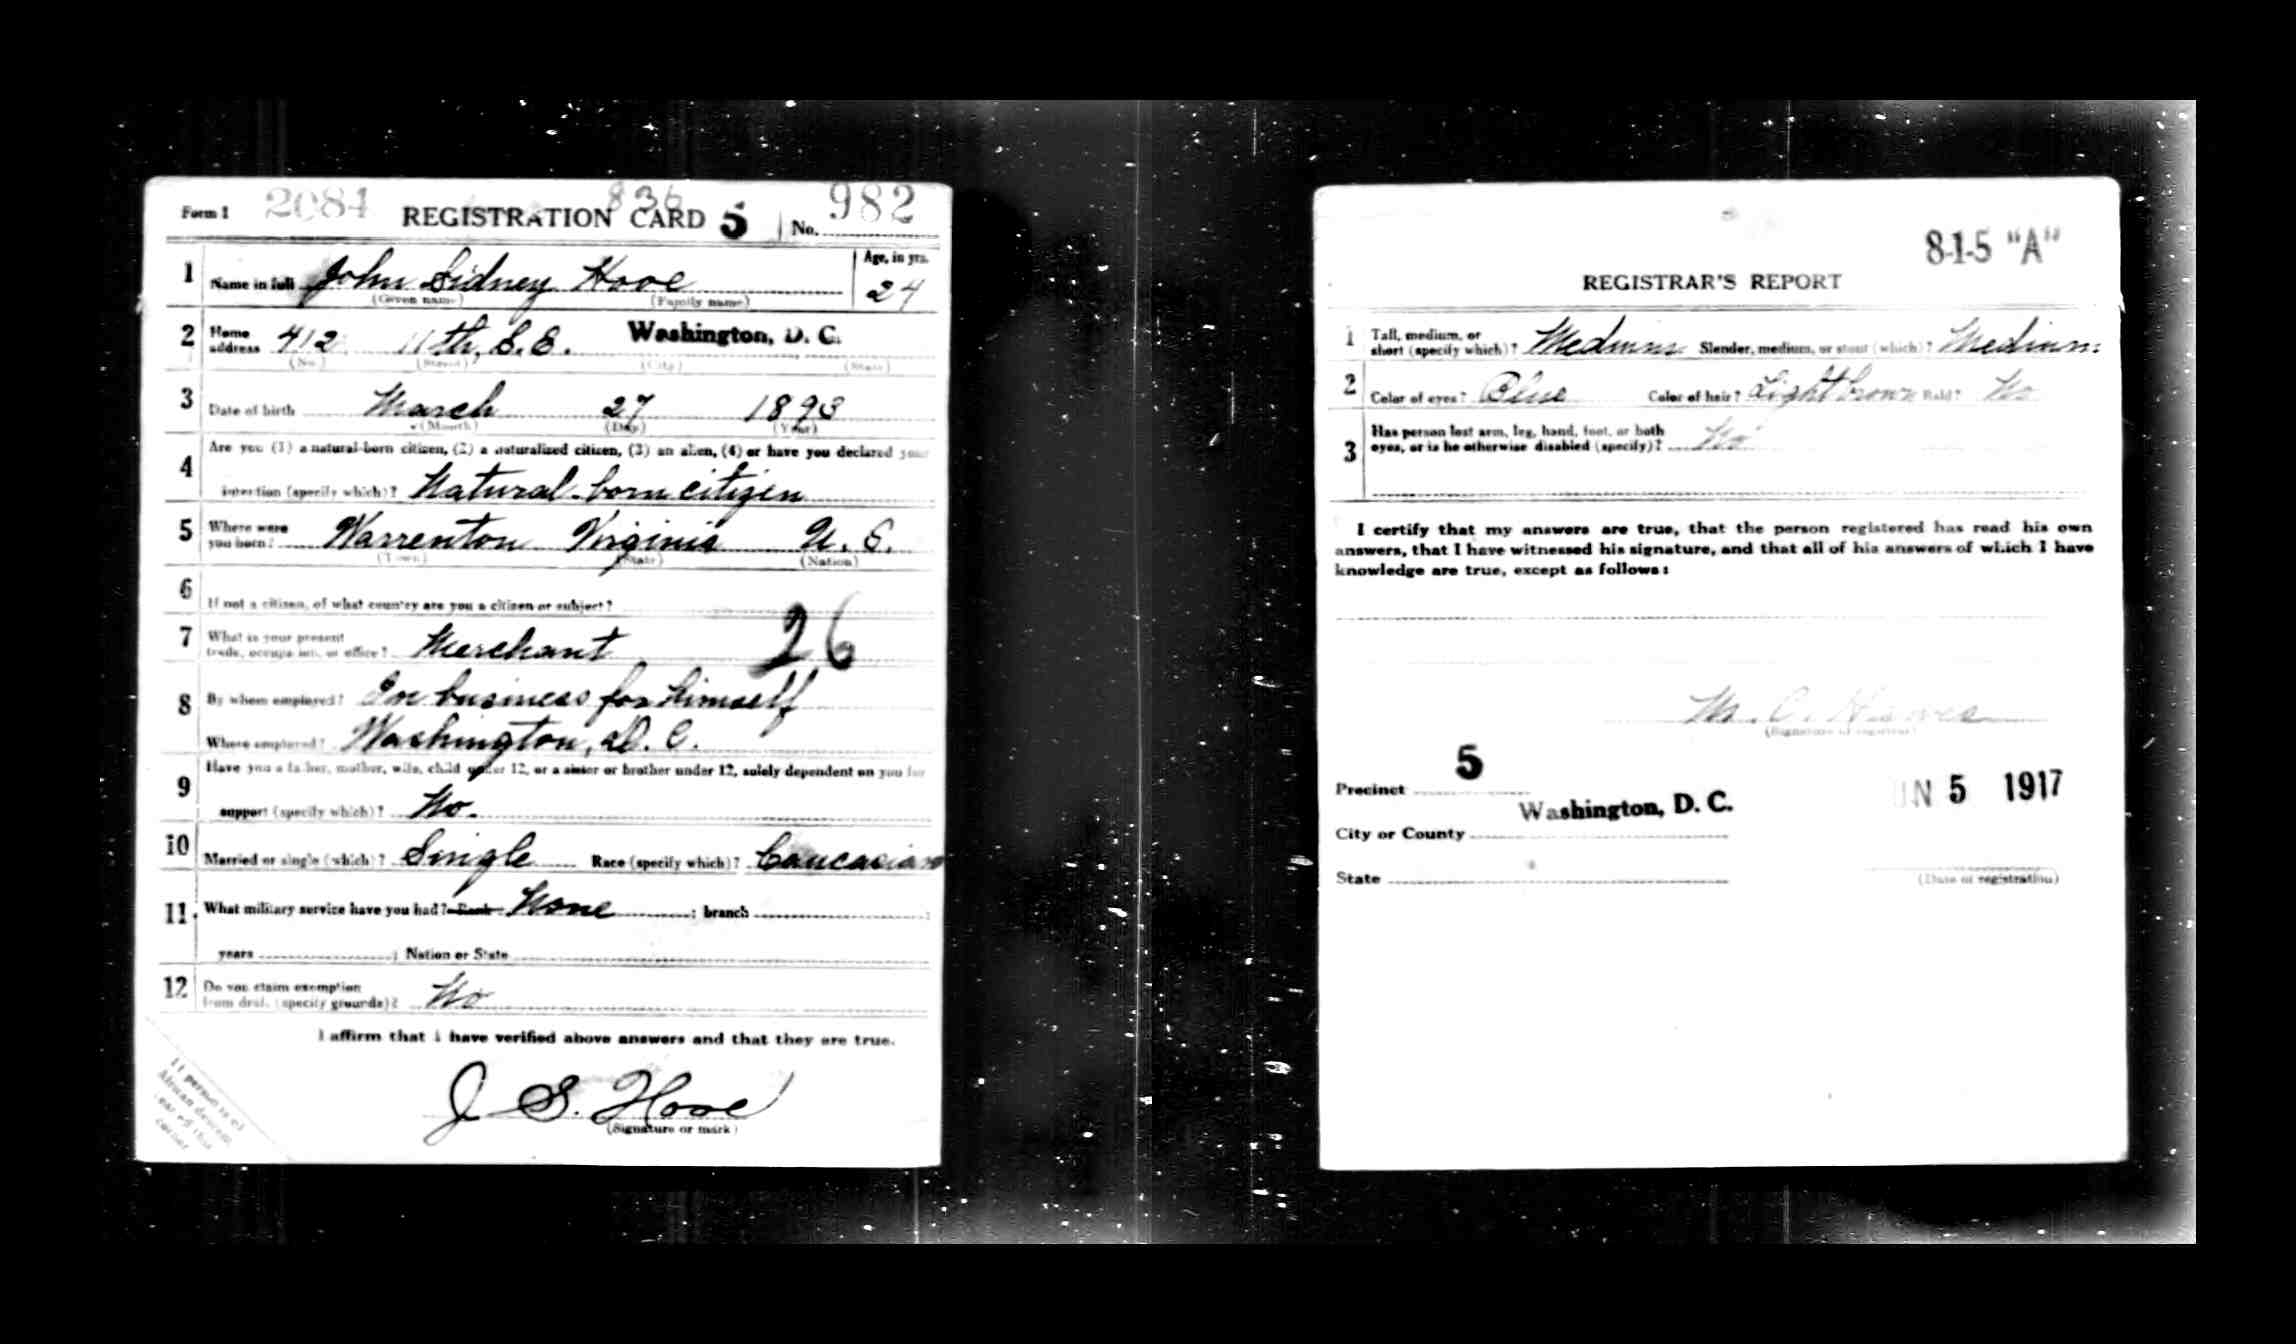 Form 1 2084 REGISTRATION CARD 836 5 No. 982
1 Name in full John Sidney Hooe Age, in yrs. 24
(Given name) (Family name)
2 Home address 412 11th, S.E. Washington, D. C.
(No.) (Street) (City) (State)
3 Date of birth March 27 1893
(Month) (Day) (Year)
4 Are you (1) a natural-born citizen, (2) a naturalized citizen, (3) an alien, (4) or have you declared your
intention (specify which)? Natural-born citizen
5 Where were you born? Warrenton Virginia U. S.
(Town) (State) (Nation)
6 If not a citizen, of what country are you a citizen or subject?
7 What is your present trade, occupation, or office? Merchant 26
8 By whom employed? In business for himself
Where employed? Washington, D. C.
9 Have you a father, mother, wife, child under 12, or a sister or brother under 12, solely dependent on you for
support (specify which)? No.
10 Married or single (which)? Single Race (specify which)? Caucasian
11 What military service have you had? Rank None ; branch ;
years ; Nation or State
12 Do you claim exemption from draft (specify grounds)? No
I affirm that I have verified above answers and that they are true.
J. S. Hooe
(Signature or mark)
If person is of
African descent
tear off this
corner
8-1-5 "A"
REGISTRAR'S REPORT
1 Tall, medium, or short (specify which)? Medium Slender, medium, or stout (which)? Medium
2 Color of eyes? Blue Color of hair? Light brown Bald? No
3 Has person lost arm, leg, hand, foot, or both
eyes, or is he otherwise disabled (specify)? No
I certify that my answers are true, that the person registered has read his own
answers, that I have witnessed his signature, and that all of his answers of which I have
knowledge are true, except as follows:
M. C.
(Signature of registrar)
Precinct 5
City or County Washington, D. C. UN 5 1917
State (Date of registration)